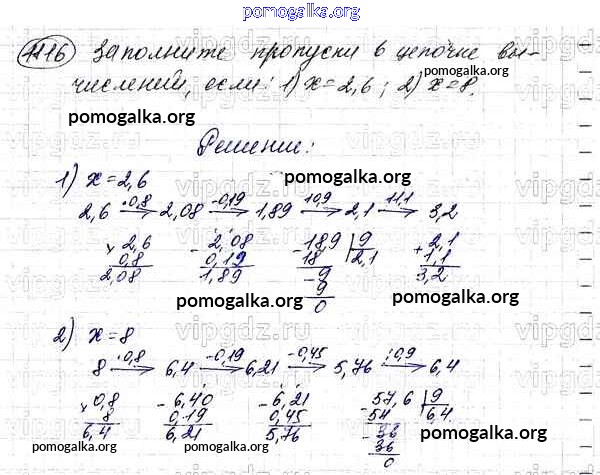 pomogalka.org
1116 Заполните пропуски в цепочке вы-
числений, если: 1) x=2,6; 2) x=8.
pomogalka.org
pomogalka.org
Решение:
1) x=2,6
pomogalka.org
2,6 ·0,8→ 2,08 -0,19→ 1,89 :0,9→ 2,1 +1,1→ 3,2
× 2,6 - 2,08 - 18,9 | 9 + 2,1
0,8 0,19 18 2,1 1,1
2,08 1,89 - 9 3,2
9
0
pomogalka.org
pomogalka.org
2) x=8
8 ·0,8→ 6,4 -0,19→ 6,21 -0,45→ 5,76 :0,9→ 6,4
× 0,8 - 6,40 - 6,21 - 57,6 | 9
8 0,19 0,45 54 6,4
6,4 6,21 5,76 - 36
36
0
pomogalka.org
pomogalka.org
pomogalka.org